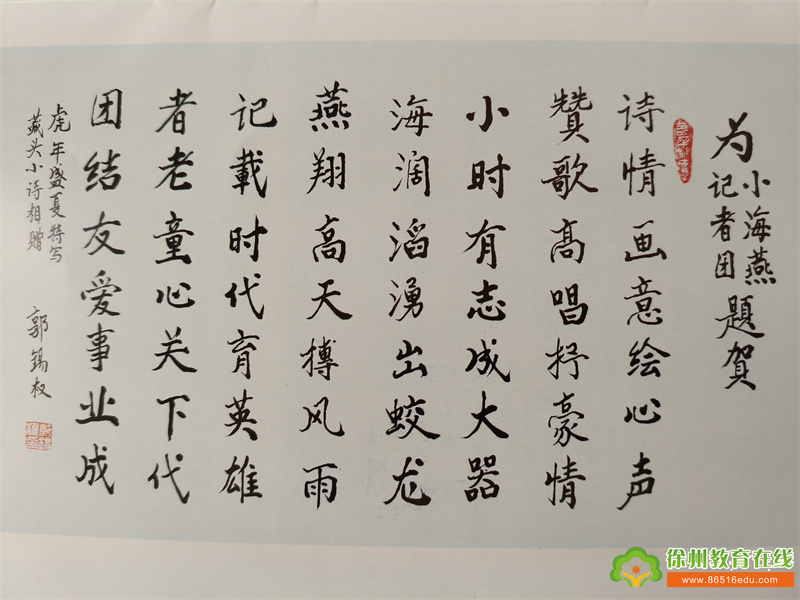 为小海燕记者团题贺
诗情画意绘心声
赞歌高唱抒豪情
小时有志成大器
海阔滔湧出蛟龙
燕翔高天搏风雨
记载时代育英雄
者老童心关下代
团结友爱事业成
虎年盛夏特写
藏头小诗相赠
郭锡权
徐州教育在线
www.86516edu.com